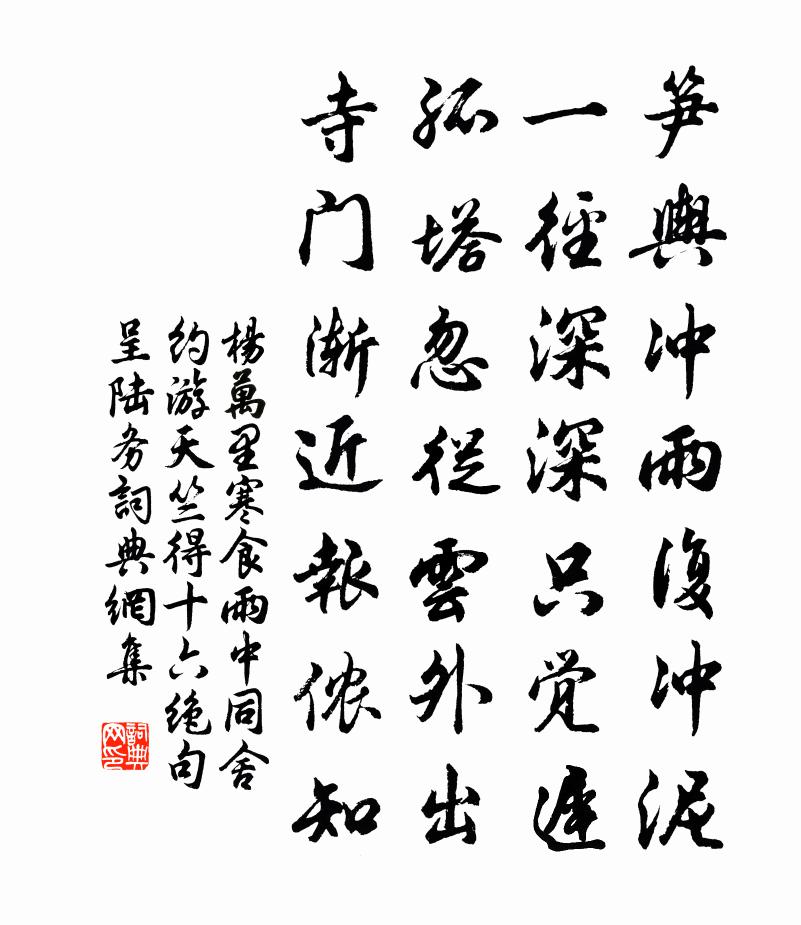 笋輿冲雨復冲泥
一徑深深只覚遲
孤塔忽從雲外出
寺门漸近報侬知
楊萬里寒食雨中同舍
约游天竺得十六绝句
呈陆务詞典網集
詞典网印